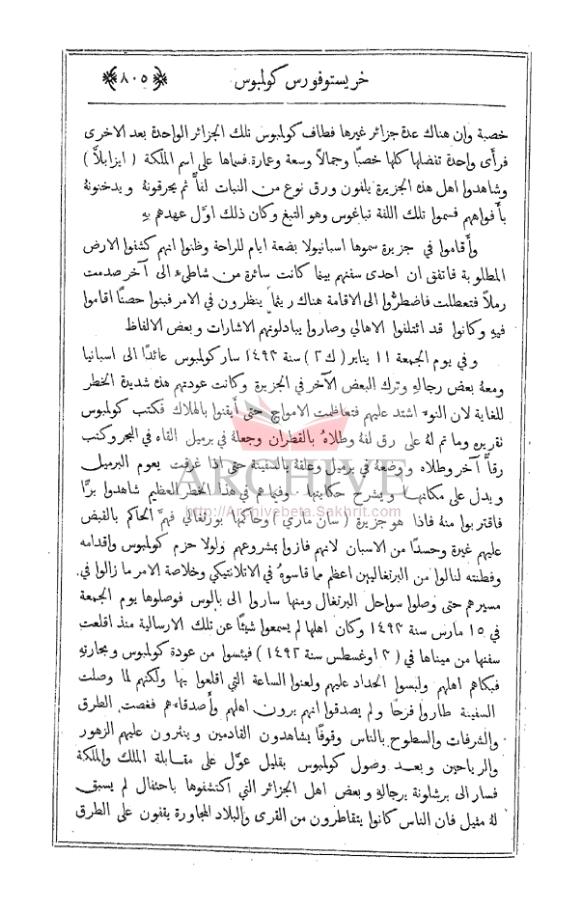 خريستوفورس كولمبوس
﴿٨٠٥﴾
خصبة وان هناك عدة جزائر غيرها فطاف كولمبوس تلك الجزائر الواحدة بعد الاخرى
فرأى واحدة تفضلها كلها خصبًا وجمالاً وسعة وعمارة. فسماها على اسم الملكة ( ايزابلاَّ )
وشاهدوا اهل هذه الجزيرة يلفون ورق نوع من النبات لفًّا ثم يحرقونهُ ويدخنونهُ
بأفواههم فسموا تلك اللفة تباغوس وهو التبغ وكان ذلك اوَّل عهدهم بهِ
وأقاموا في جزيرة سموها اسبانيولا بضعة ايام للراحة وظنوا انهم كشفوا الارض
المطلوبة فاتفق ان احدى سفنهم بينما كانت سائرة من شاطىءٍ الى آخر صدمت
رملاً فتعطلت فاضطرُّوا الى الاقامة هناك ريثما ينظرون في الامر فبنوا حصنًا اقاموا
فيهِ وكانوا قد ائتلفوا الاهالي وصاروا يبادلونهم الاشارات وبعض الالفاظ
وفي يوم الجمعة ١١ يناير (ك٢) سنة ١٤٩٣ سار كولمبوس عائدًا الى اسبانيا
ومعهُ بعض رجالهِ وترك البعض الآخر في الجزيرة وكانت عودتهم هذه شديدة الخطر
للغاية لان النوءَ اشتد عليهم فتعاظمت الامواج حتى أيقنوا بالهلاك فكتب كولمبوس
تقريره وما تم لهُ على رق لفهُ وطلاهُ بالقطران وجعلهُ في برميل القاه في البحر وكتب
رقًّا آخر وطلاه ووضعهُ في برميل وعلقهُ بالسفينة حتى اذا غرقت يعوم البرميل
ويدل على مكانها ويشرح حكايتها وفيما هم في هذا الخطر العظيم شاهدوا برًّا
فاقتربوا منهُ فاذا هو جزيرة ( سان ماري ) وحاكمها بورتغالي فهمَّ الحاكم بالقبض
عليهم غيرة وحسدًا من الاسبان لانهم فازوا بمشروعهم ولولا حزم كولمبوس وإقدامه
وفطنته لنالوا من البرتغاليين اعظم مما قاسوهُ في الاتلانتيكي وخلاصة الامر ما زالوا في
مسيرهم حتى وصلوا سواحل البرتغال ومنها ساروا الى بالوس فوصلوها يوم الجمعة
في ١٥ مارس سنة ١٤٩٣ وكان اهلها لم يسمعوا شيئًا عن تلك الارسالية منذ اقلعت
سفنها من ميناها في (٢ اوغسطس سنة ١٤٩٢) فيئسوا من عودة كولمبوس وبحارتهِ
فبكاهم اهلهم ولبسوا الحداد عليهم ولعنوا الساعة التي اقلعوا بها ولكنهم لما وصلت
السفينة طاروا فرحًا ولم يصدقوا انهم يرون اهلهم وأصدقاءهم فغصت الطرق
والشرفات والسطوح بالناس وقوفًا يشاهدون القادمين وينثرون عليهم الزهور
والرياحين وبعد وصول كولمبوس بقليل عوَّل على مقابلة الملك والملكة
فسار الى برشلونة برجالهِ وبعض اهل الجزائر التي اكتشفوها باحتفال لم يسبق
لهُ مثيل فان الناس كانوا يتقاطرون من القرى والبلاد المجاورة يقفون على الطرق
ARCHIVE
http://Archivebeta.Sakhrit.com